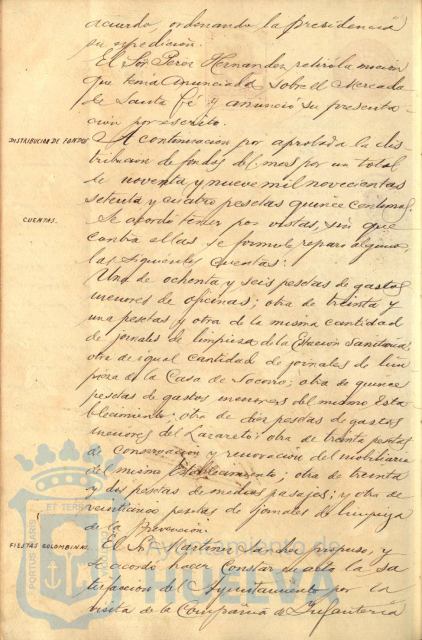 acuerdo, ordenando la presidencia
su expedición.
El Sor. Perez Hernandez, retiró la moción
que tenia anunciada sobre el Mercado
de Santa Fé y anunció su presenta-
ción por escrito.
DISTRIBUCION DE FONDOS
A continuación fué aprobada la dis-
tribucion de fondos del mes por un total
de noventa y nueve mil novecientas
setenta y cuatro pesetas quince centimos.
CUENTAS.
Se acordó tener por vistas, sin que
contra ellas se formule reparo alguno
las siguientes cuentas:
Una de ochenta y seis pesetas de gastos
menores de oficinas; otra de treinta y
una pesetas y otra de la misma cantidad
de jornales de limpieza de la Estación Sanitaria;
otra de igual cantidad de jornales de lim
pieza de la Casa de Socorro; otra de quince
pesetas de gastos menores del mismo Esta
blecimiento; otra de diez pesetas de gastos
menores del Lazareto; otra de treinta pesetas
de conservacion y renovación del mobiliario
del mismo Establecimiento; otra de treinta
y dos pesetas de medios pasajes; y otra de
veinticinco pesetas de jornales de limpieza
de la Prevención.
FIESTAS COLOMBINAS.
El Sr. Martinez Sanchez propuso, y
se acordó hacer constar en acta la sa
tisfacion del Ayuntamiento por la
visita de la Compañia de Infanteria
PORTUS MARIS ET TERRAE CUSTODIA
Ayuntamiento de
HUELVA